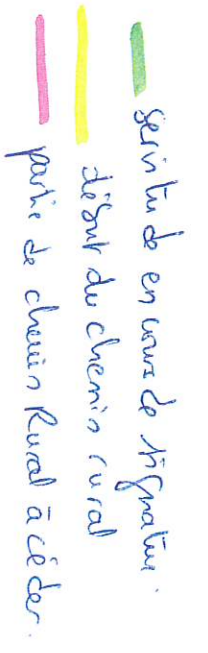 servitude en cours de signature.
début du chemin rural
partie de chemin Rural à céder.